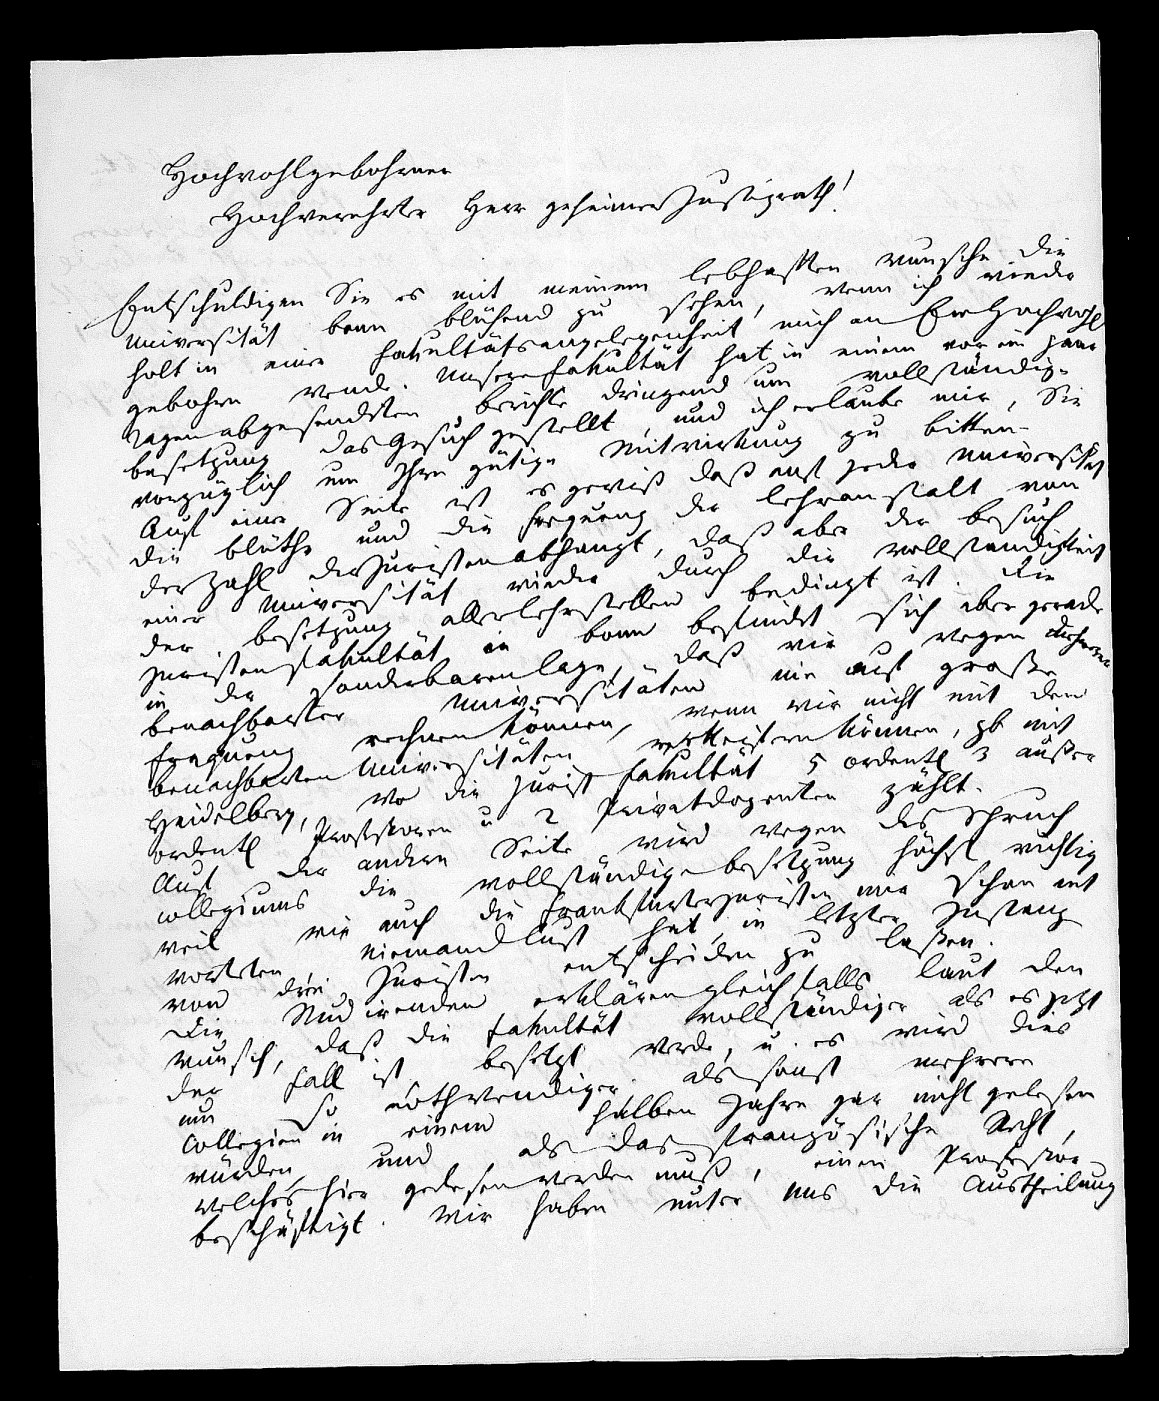 Hochwohlgebohrner
Hochverehrter Herr geheimer Justizrath!
Entschuldigen Sie es mit meinem lebhaften wunsche die
Universität bonn blühend zu sehen, wenn ich wieder
holt in einer fakultätsangelegenheit mich an Ew Hochwohl
gebohrn wende. Unsere fakultät hat in einem vor ein paar
tagen abgesendeten berichte dringend um vollständige
besetzung das Gesuch gestellt, und ich erlaube mir, Sie
vorzüglich um Ihre gütige Mitwirkung zu bitten.
Auf einer Seite ist es gewiß daß auf jeder Universität
die blüthe und die frequenz der lehranstalt von
der Zahl der Juristen abhangt, daß aber der besuch
einer Universität wieder durch die vollständigkeit
der besetzung aller lehrstellen bedingt ist. Die
Juristenfakultät in bonn befindet sich aber gerade
in der sonderbaren lage, daß wir wegen mehrerer
benachbarter Universitäten nie auf große
frequenz rechnen können, wenn wir nicht mit den
benachbarten Universitäten wetteifern können, zb mit
Heidelberg, wo die Jurist fakultät 5 ordentl 3 außer
ordentl Professoren u 2 Privatdozenten zählt.
Auf der andern Seite wird wegen des Spruch
collegiums die vollständige besetzung höchst wichtig
weil wie auch die frankfurter Juristen mir schon ant
worteten, niemand lust hat, in letzter Instanz
von drei Juristen entscheiden zu laßen.
Die Studirenden erklären gleichfalls laut den
wunsch, daß die fakultät vollständiger als es jetzt
der fall ist besetzt werde, u. es wird dies
um so nothwendiger als sonst mehrere
Collegien in einem halben Jahre gar nicht gelesen
würden, und als das französische Recht,
welches hier gelesen werden muß, einen Professor
beschäftigt. Wir haben unter uns die Austheilung